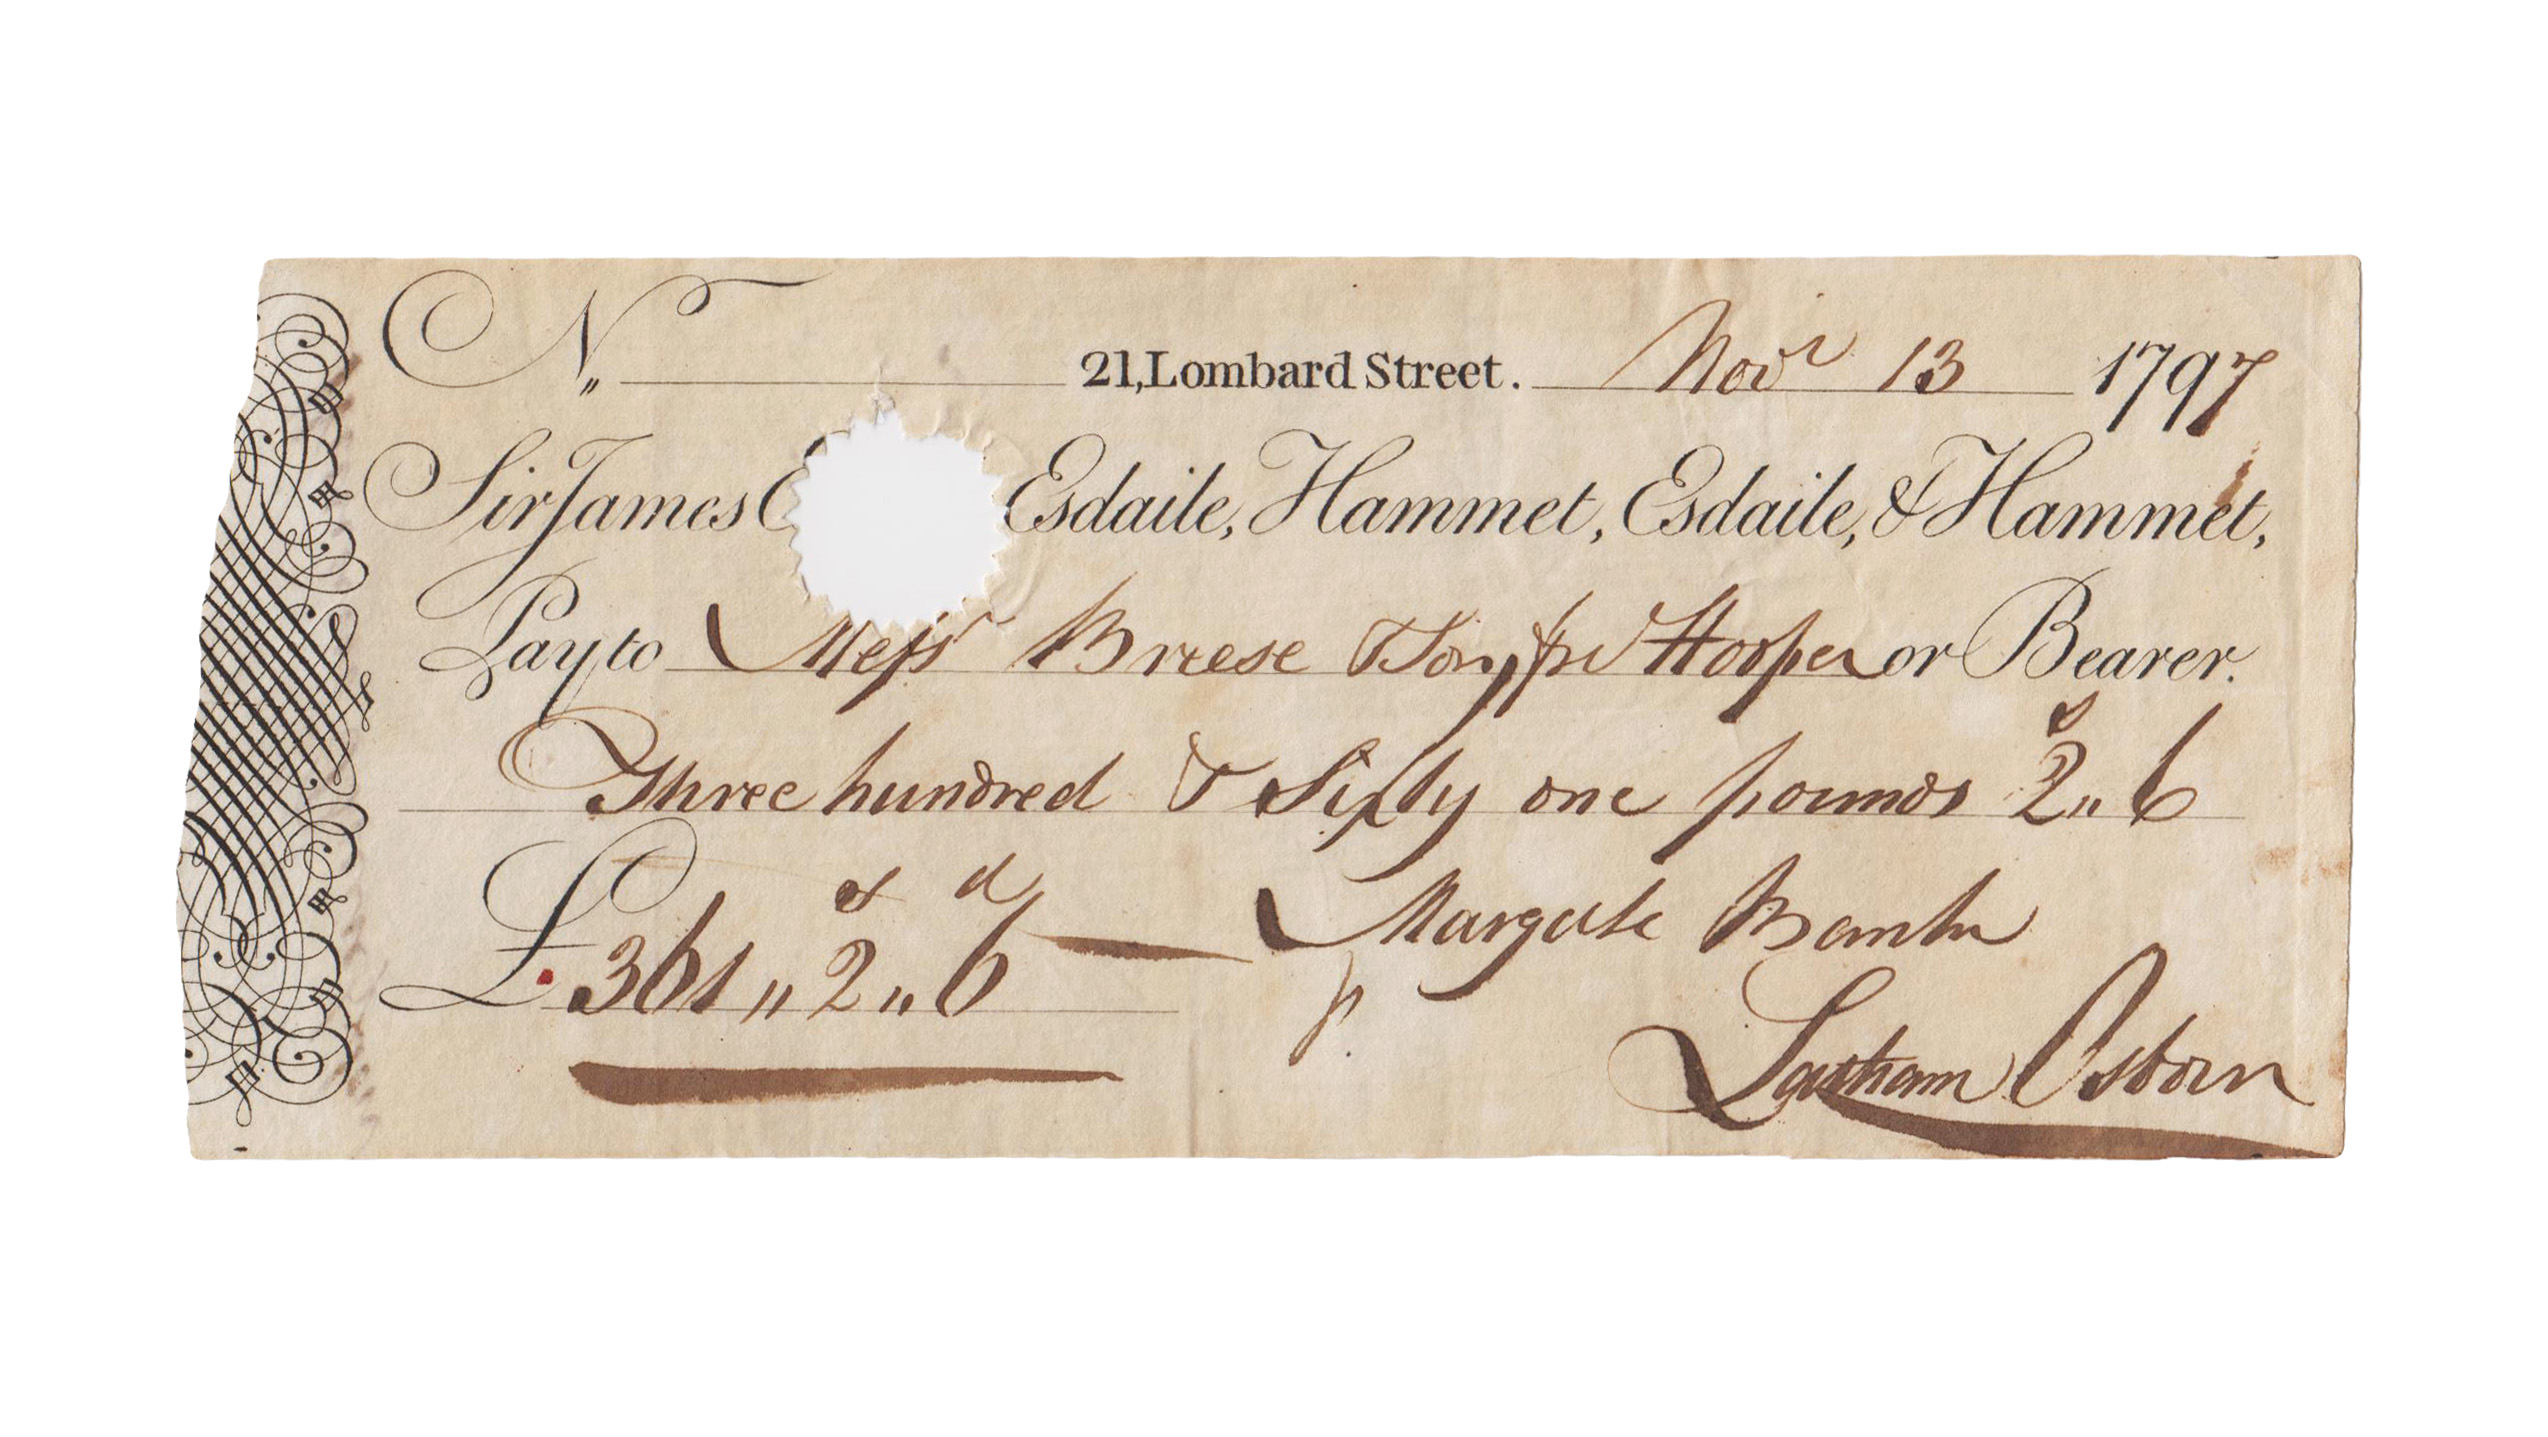 N.
21, Lombard Street. Novr 13 1797
Sir James E Esdaile, Hammet, Esdaile, & Hammet,
Pay to Messrs Breese & for Hooper or Bearer.
Three hundred & Sixty one pounds 2s„ 6
£ 361„ 2s„ 6d Margate Bank
p. Latham Osborn